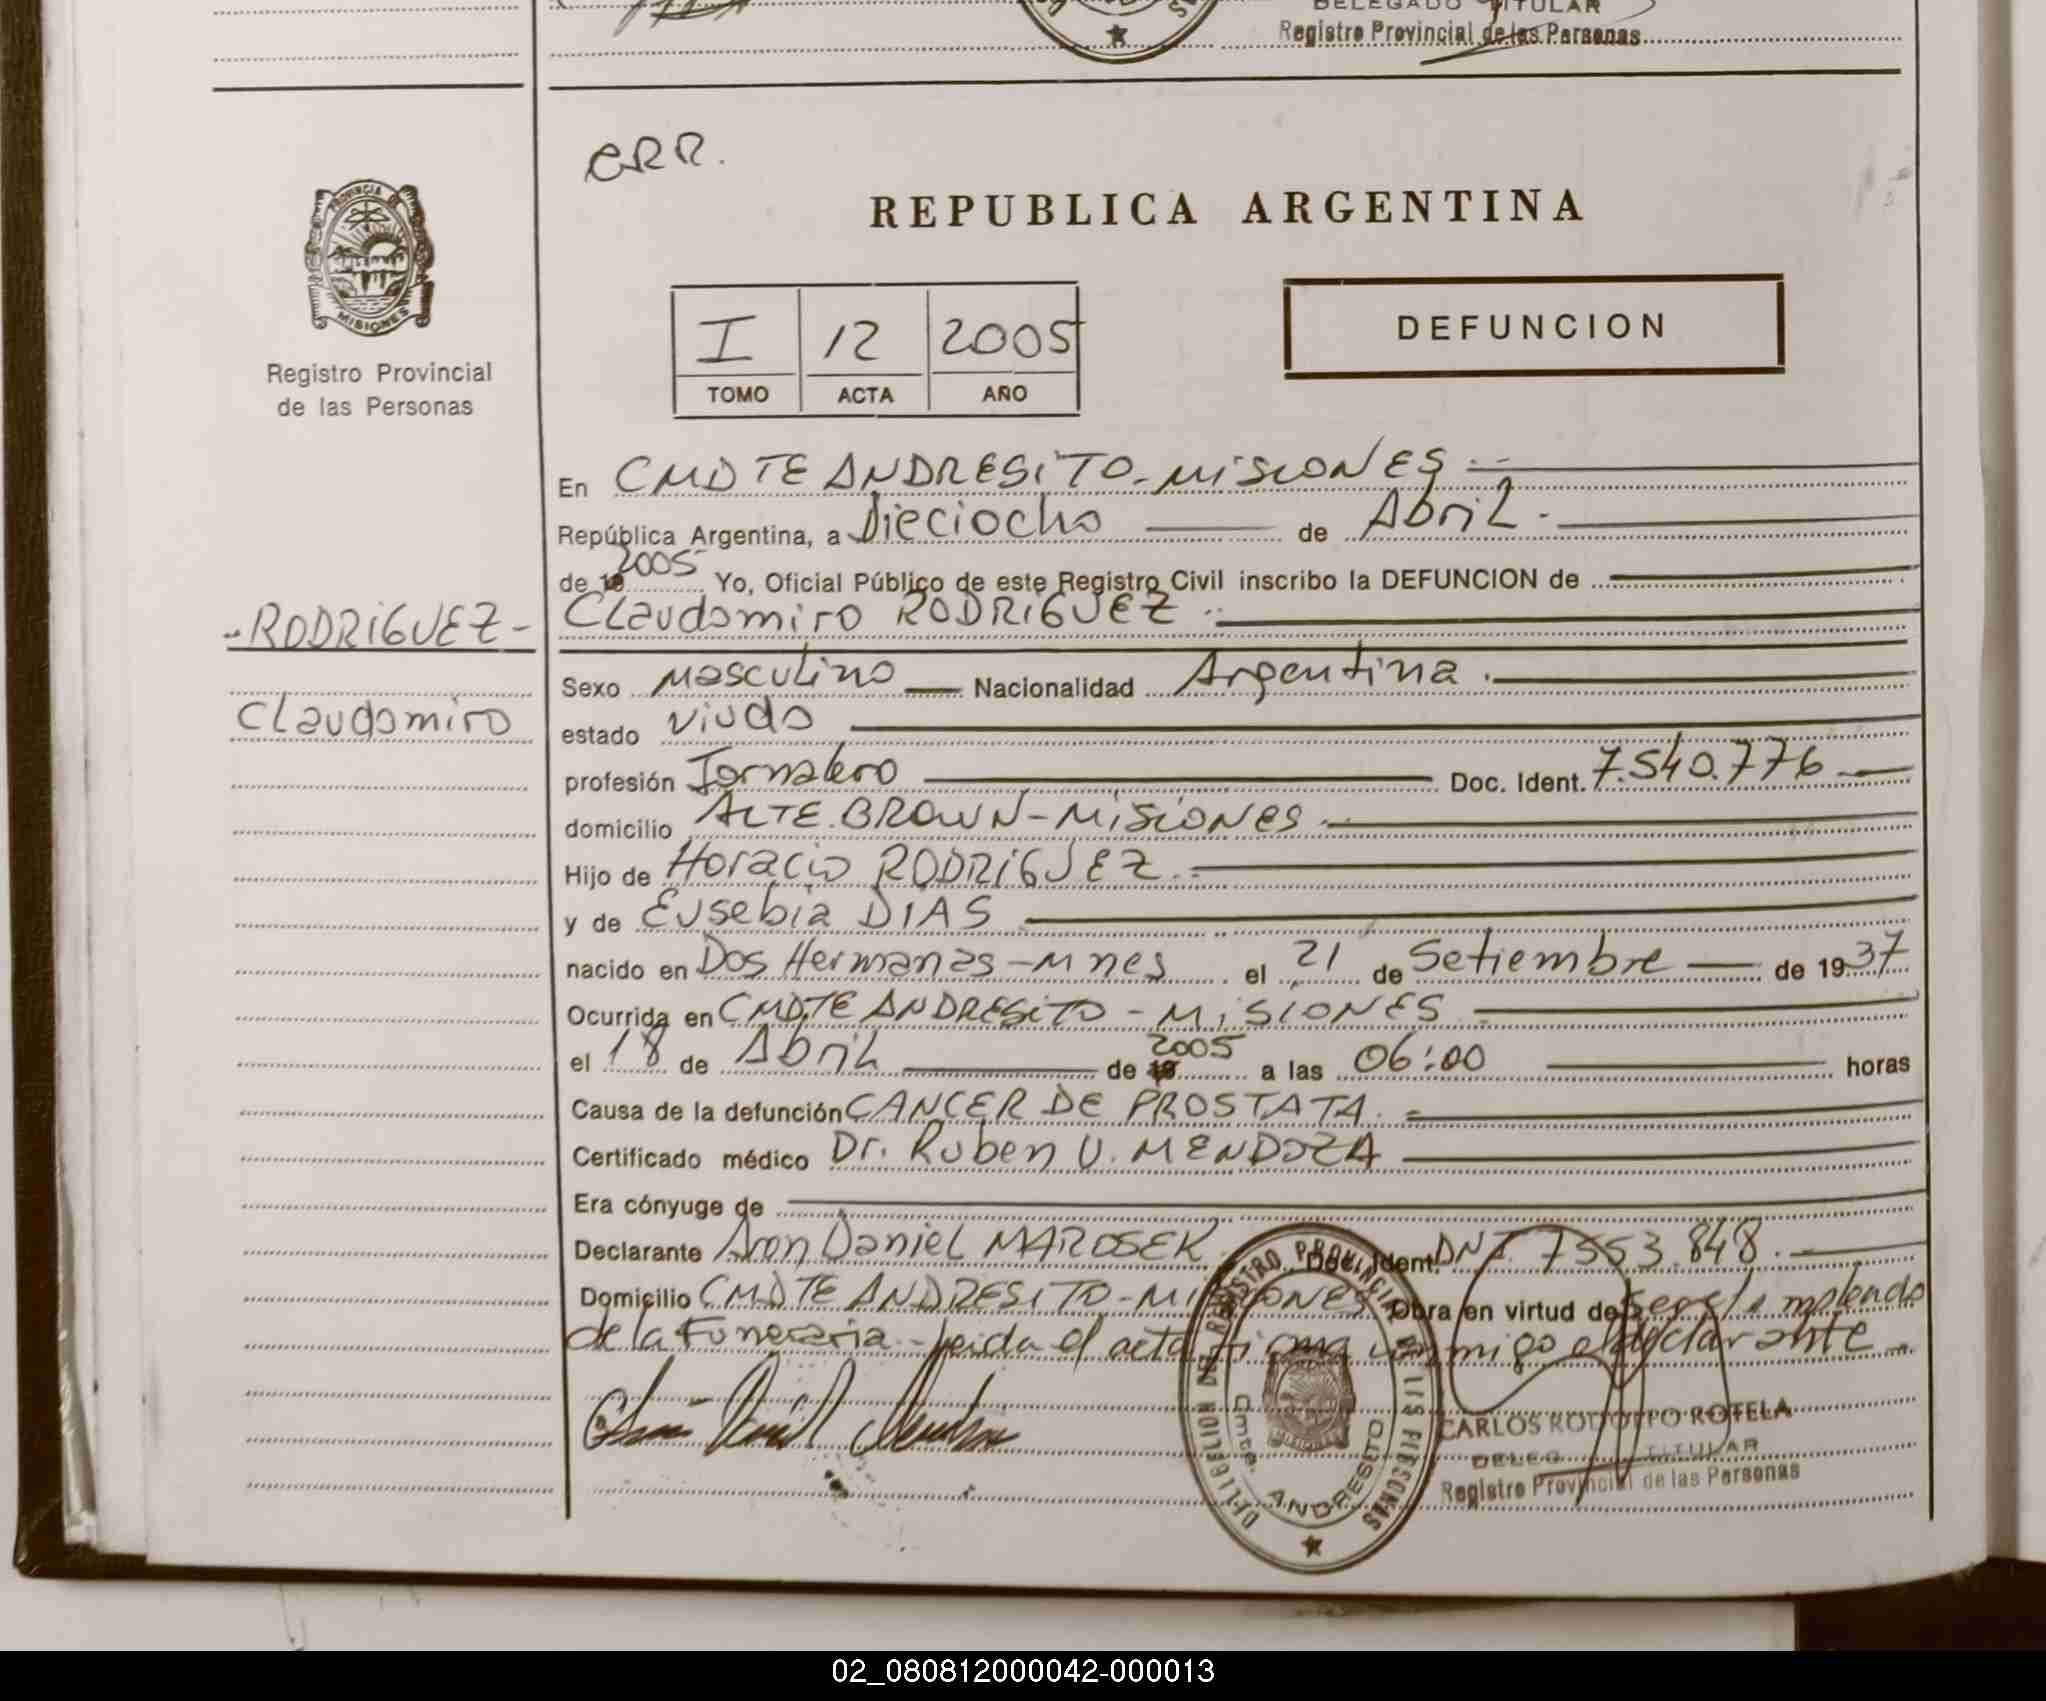 DELEGADO TITULAR
Registro Provincial de las Personas
CRR.
PROVINCIA DE
MISIONES
Registro Provincial
de las Personas
REPUBLICA ARGENTINA
I 12 2005
TOMO ACTA AÑO
DEFUNCION
En CMDTE ANDRESITO-MISIONES
República Argentina, a Dieciocho de Abril.
de 2005 Yo, Oficial Público de este Registro Civil inscribo la DEFUNCION de
-RODRIGUEZ-
Claudomiro RODRIGUEZ
Claudomiro
Sexo Masculino Nacionalidad Argentina.
estado viudo
profesión Jornalero Doc. Ident. 7.540.776
domicilio ALTE. BROWN-MISIONES
Hijo de Horacio RODRIGUEZ.
y de Eusebia DIAS
nacido en Dos Hermanas-Mnes el 21 de Setiembre de 1937
Ocurrida en CMDTE ANDRESITO - MISIONES
el 18 de Abril de 2005 a las 06:00 horas
Causa de la defunción CANCER DE PROSTATA.
Certificado médico Dr. Ruben U. MENDOZA
Era cónyuge de
Declarante Aron Daniel MAROSEK Doc. Ident. DNI 7553.848.
Domicilio CMDTE ANDRESITO-MISIONES Obra en virtud de
de la Funeraria - leida el acta firma conmigo el declarante
DELEGACION DEL REGISTRO PROVINCIAL DE LAS PERSONAS
Cmte. ANDRESITO
CARLOS RODOLFO ROTELA
TITULAR
Registro Provincial de las Personas
02_080812000042-000013